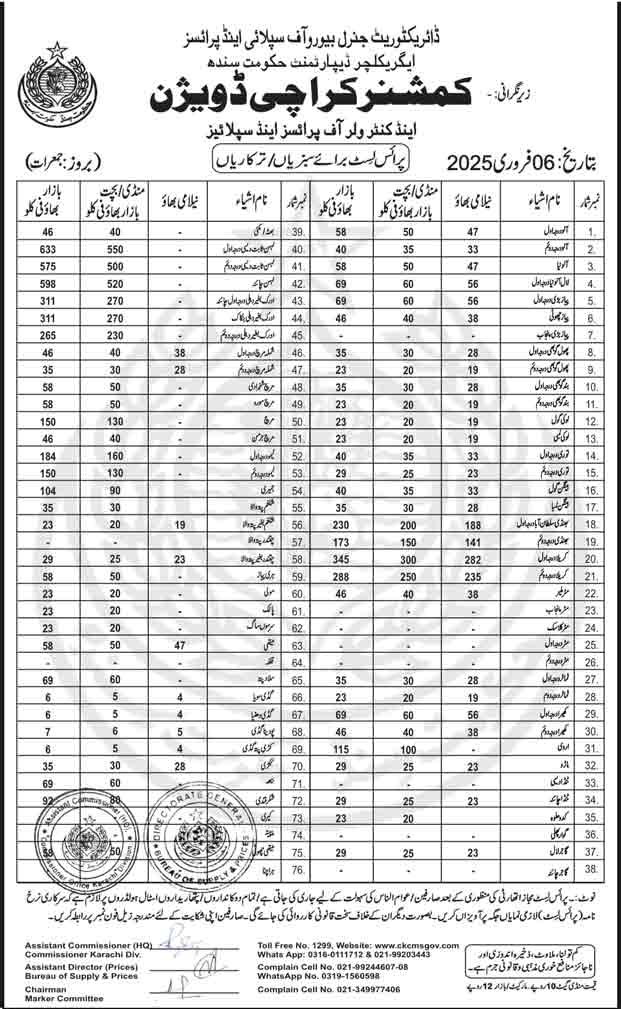 ڈائریکٹوریٹ جنرل بیورو آف سپلائی اینڈ پرائسز
ایگریکلچر ڈیپارٹمنٹ حکومت سندھ
زیر نگرانی: -
کمشنر کراچی ڈویژن
اینڈ کنٹرولر آف پرائسز اینڈ سپلائیز
بتاریخ: 06 فروری 2025 پرائس لسٹ برائے سبزیاں / ترکاریاں (بروز: جمعرات)
نمبر شمار نام اشیاء نیلامی بھاؤ منڈی/بچت بازار بھاؤ فی کلو بازار بھاؤ فی کلو نمبر شمار نام اشیاء نیلامی بھاؤ منڈی/بچت بازار بھاؤ فی کلو بازار بھاؤ فی کلو
1. آلو درجہ اول 47 50 58 39. - 40 46
2. آلو درجہ دوئم 33 35 40 40. لہسن ثابت دیسی درجہ اول - 550 633
3. آلو نیا 47 50 58 41. لہسن ثابت دیسی درجہ دوئم - 500 575
4. لال آلو نیا درجہ اول 56 60 69 42. لہسن چائنہ - 520 598
5. پیاز بڑی درجہ اول 56 60 69 43. ادرک بغیر دھلی درجہ اول چائنہ - 270 311
6. پیاز چھوٹی 38 40 46 44. ادرک بغیر دھلی بنکاک - 270 311
7. پیاز بڑی پنجاب - - - 45. ادرک بغیر دھلی درجہ دوئم - 230 265
8. پھول گوبھی درجہ اول 28 30 35 46. شملہ مرچ درجہ اول 38 40 46
9. پھول گوبھی درجہ دوئم 19 20 23 47. شملہ مرچ درجہ دوئم 28 30 35
10. بند گوبھی درجہ اول 28 30 35 48. مرچ شہزادی - 50 58
11. بند گوبھی درجہ دوئم 19 20 23 49. مرچ - 50 58
12. لوکی گول 19 20 23 50. مرچ - 130 150
13. لوکی لمبی 19 20 23 51. مرچ - 40 46
14. توری درجہ اول 33 35 40 52. لیموں درجہ اول - 160 184
15. توری درجہ دوئم 23 25 29 53. لیموں درجہ دوئم - 130 150
16. بیگن گول 33 35 40 54. - 90 104
17. بیگن لمبا 28 30 35 55. شلغم پتہ والا - 30 35
18. بھنڈی سلطان آباد درجہ اول 188 200 230 56. شلغم بغیر پتہ والا 19 20 23
19. بھنڈی درجہ دوئم 141 150 173 57. چقندر پتہ والا - - -
20. کریلا درجہ اول 282 300 345 58. چقندر بغیر پتہ والا 23 25 29
21. کریلا درجہ دوئم 235 250 288 59. ہری پیاز - 50 58
22. مٹر 38 40 46 60. مولی - 20 23
23. مٹر پنجاب - - - 61. پالک - 20 23
24. مٹر - - - 62. سرسوں ساگ - 20 23
25. مٹر درجہ اول - - - 63. میتھی 47 50 58
26. مٹر درجہ دوئم - - - 64. - - -
27. ٹماٹر درجہ اول 28 30 35 65. سلاد پتہ - 60 69
28. ٹماٹر درجہ دوئم 19 20 23 66. گڈی سویا 4 5 6
29. کھیرا درجہ اول 56 60 69 67. گڈی دھنیا 4 5 6
30. کھیرا درجہ دوئم 38 40 46 68. پودینا گڈی 5 6 7
31. اروی - 100 115 69. کڑی پتہ گڈی 4 5 6
32. 23 25 29 70. 28 30 35
33. - - - 71. - 60 69
34. 23 25 29 72. شکرقندی - 80 92
35. کدو - 20 23 73. کیری - - -
36. - - - 74. - - -
37. گاجر لال 23 25 29 75. - 50 58
38. گاجر چائنہ - - - 76. - - -
نوٹ: - پرائس لسٹ مجاز اتھارٹی کی منظوری کے بعد صارفین / عوام الناس کی سہولت کے لیے جاری کی جاتی ہے / تمام دوکانداروں / پتھاریداروں / اسٹال ہولڈروں پر لازم ہے کہ سرکاری نرخ
نامہ (پرائس لسٹ) لازمی نمایاں جگہ پر آویزاں کریں۔ بصورت دیگر ان کے خلاف سخت قانونی کارروائی کی جائے گی۔ صارفین اپنی شکایت کے لئے مندرجہ زیل فون نمبر پر رابطہ کریں۔
Assistant Commissioner (HQ)
Commissioner Karachi Div.
Assistant Director (Prices)
Bureau of Supply & Prices
Chairman
Marker Committee
Toll Free No. 1299, Website: www.ckcmsgov.com
Whats App: 0316-0111712 & 021-99203443
Complain Cell No. 021-99244607-08
WhatsApp No.0319-1560598
Complain Cell No. 021-349977406
کم تولنا، ملاوٹ، ذخیرہ اندوزی اور
ناجائز منافع خوری مذہبی و قانونی جرم ہے۔
قیمت منڈی گیٹ 10 روپے۔ مارکیٹ / بازار 12 روپے
Assistant Commissioner (HQ)
Commissioner Office Karachi Division
DIRECTORATE GENERAL
BUREAU OF SUPPLY & PRICES